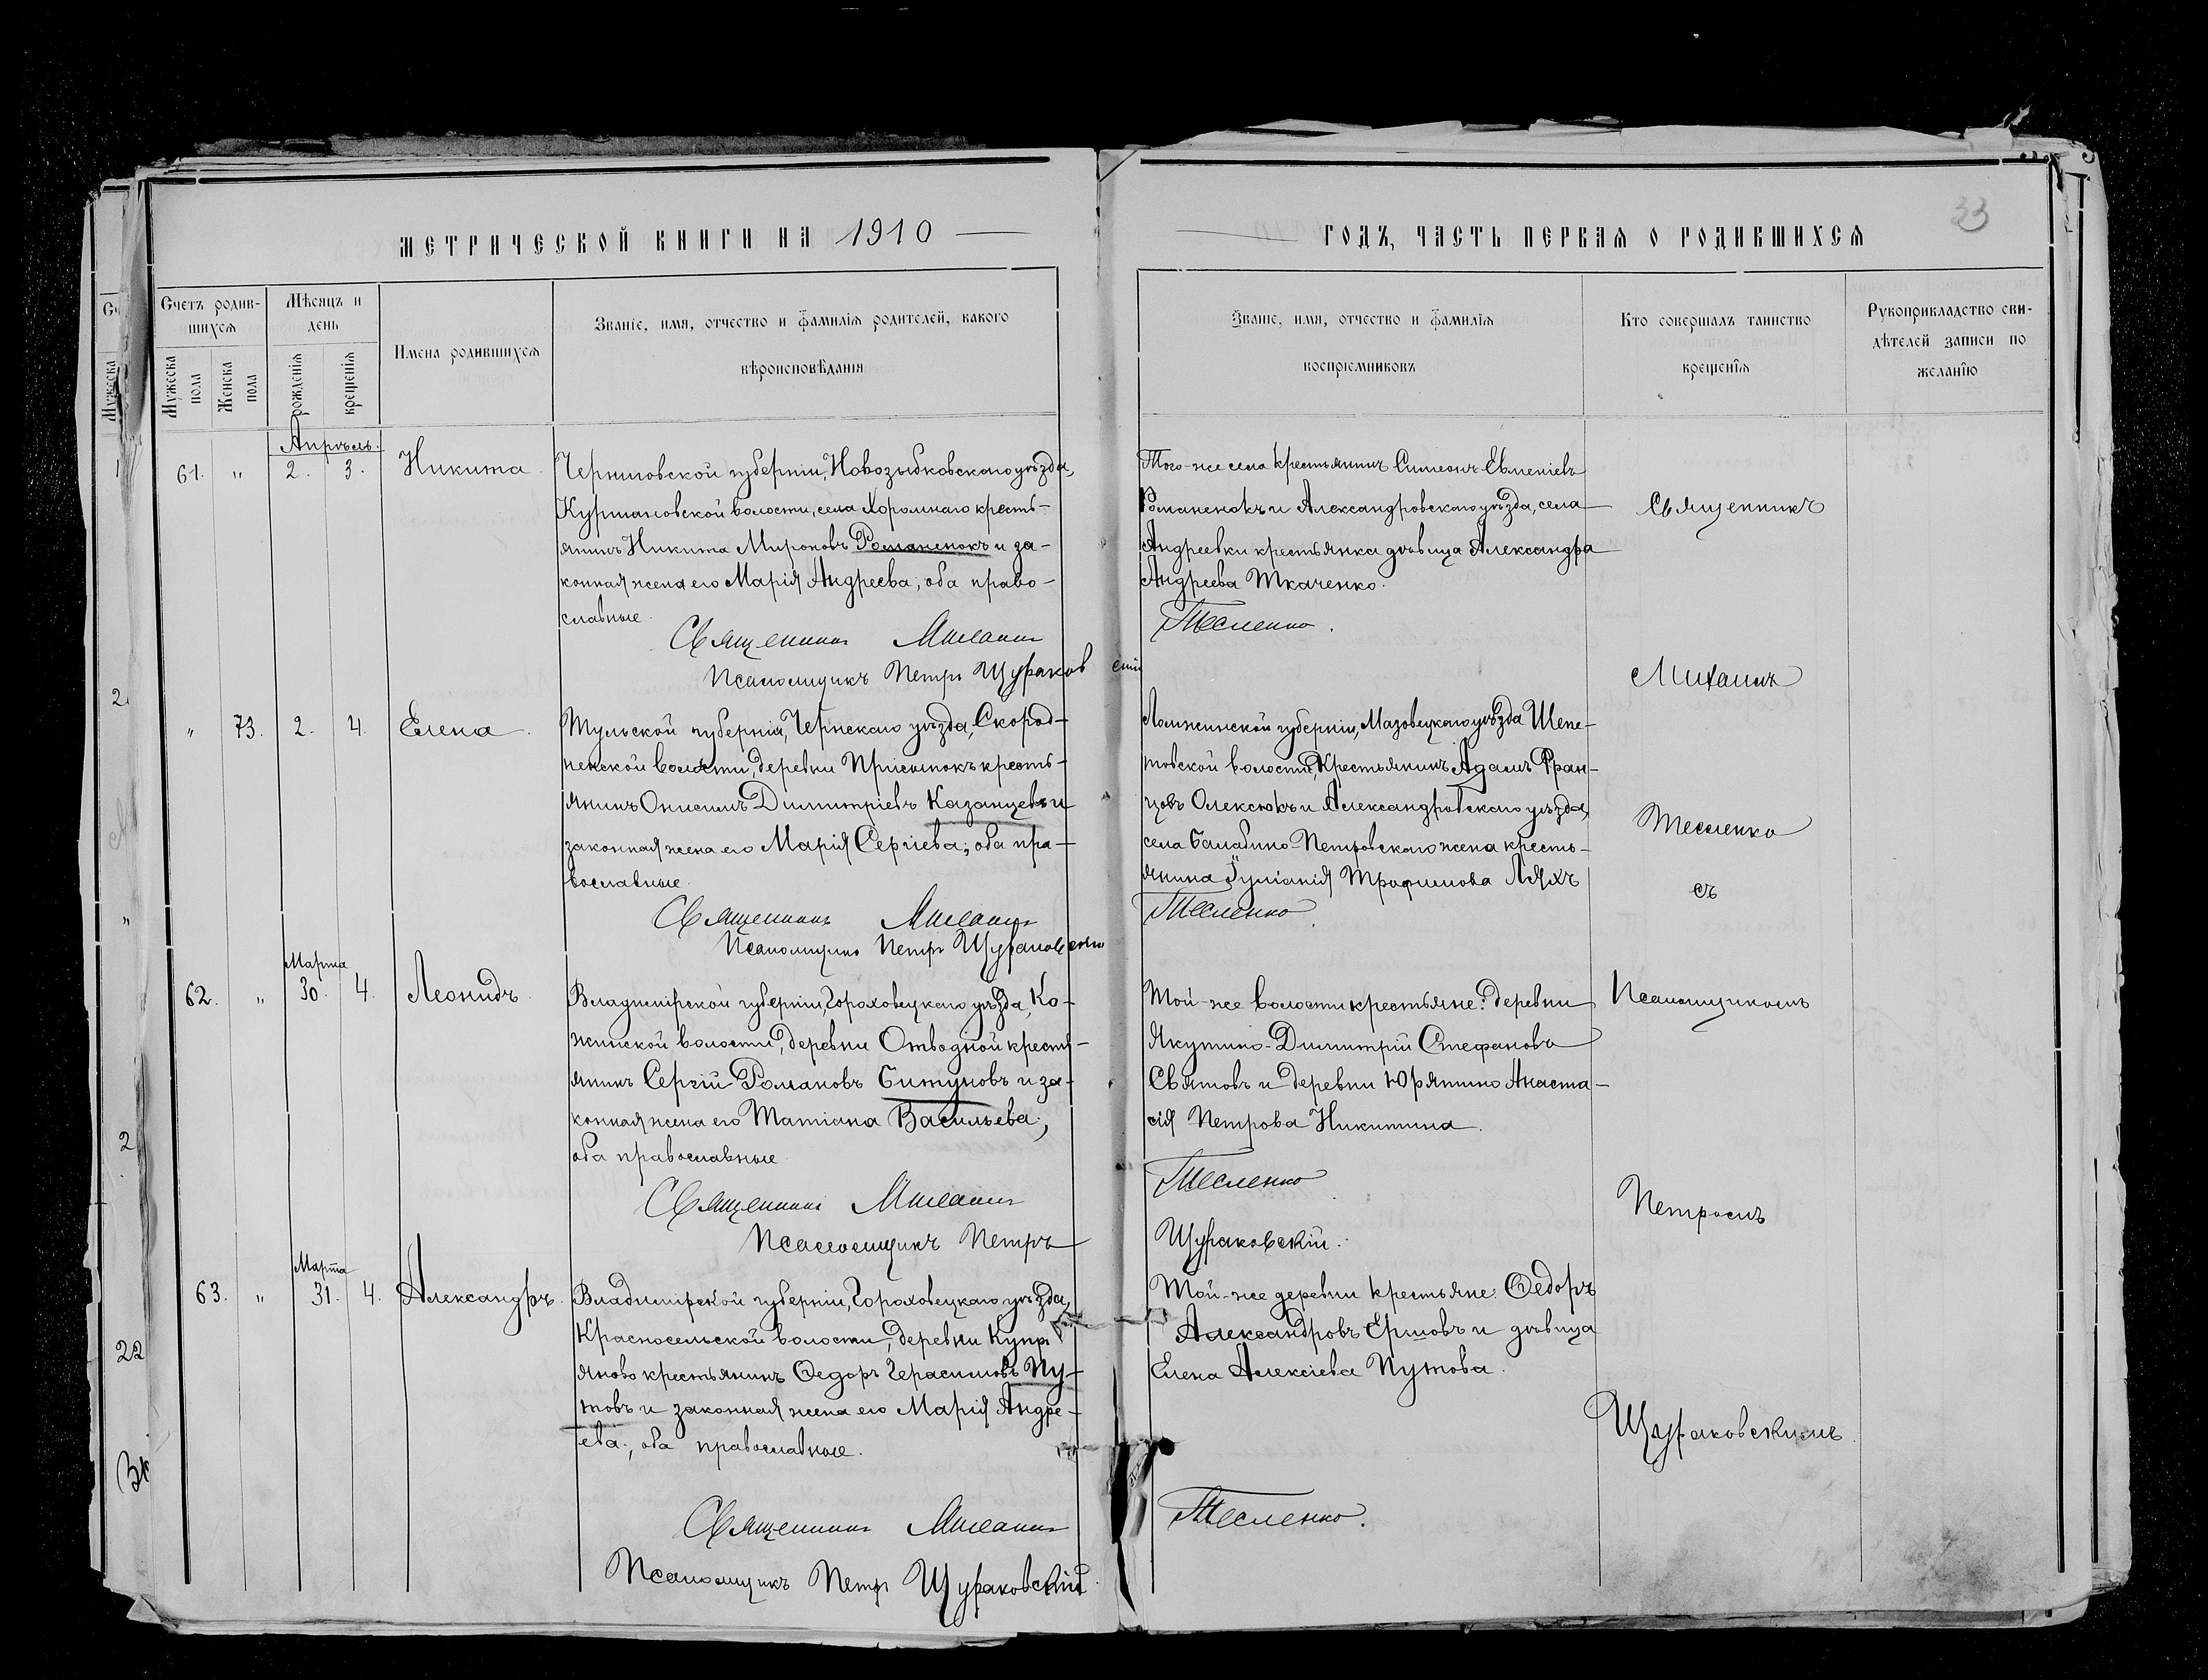 33
МЕТРИЧЕСКОЙ КНИГИ НА 1910
ГОДЪ, ЧАСТЬ ПЕРВАЯ О РОДИВШИХСЯ
Счетъ родив-
шихся
Мужеска
пола
Женска
пола
Мѣсяцъ и
день
рожденія
крещенія
Имена родившихся
Званіе, имя, отчество и фамилія родителей, какого
вѣроисповѣданія
Званіе, имя, отчество и фамилія
воспріемниковъ
Кто совершалъ таинство
крещенія
Рукоприкладство сви-
дѣтелей записи по
желанію
Апрѣль.
61. " 2. 3. Никита
Черниговской губерніи, Новозыбковскаго уѣзда,
Курмановской волости, села Хоромнаго кресть-
янинъ Никита Мироновъ Романенокъ и за-
конная жена его Марія Андреева; оба право-
славные.
Священникъ Михаилъ
Псаломщикъ Петръ Щураковскій
Того-же села крестьянинъ Симеонъ Евменіевъ
Романенокъ и Александровскаго уѣзда, села
Андреевки крестьянка дѣвица Александра
Андреева Ткаченко.
Тесленко.
" 73. 2. 4. Елена.
Тульской губерніи, Чернскаго уѣзда, Скород-
ненской волости, деревни Присынокъ кресть-
янинъ Онисимъ Димитріевъ Казанцевъ и
законная жена его Марія Сергіева; оба пра-
вославные.
Священникъ Михаилъ
Псаломщикъ Петръ Щураковскій
Ломжинской губерніи, Мазовецкаго уѣзда Шепе-
товской волости, Крестьянинъ Адамъ Фран-
цовъ Олексюкъ и Александровскаго уѣзда,
села Балабино-Петровскаго жена кресть-
янина Іуліанія Трофимова Ляхъ
Тесленко.
Марта
62. " 30. 4. Леонидъ.
Владимірской губерніи, Гороховецкаго уѣзда, Ко-
жинской волости, деревни Отводной кресть-
янинъ Сергій Романовъ Ситуновъ и за-
конная жена его Татіана Васильева;
оба православные.
Священникъ Михаилъ
Псаломщикъ Петръ
Той-же волости крестьяне: деревни
Якутино-Димитрій Стефановъ
Святовъ и деревни Юрятино Анаста-
сія Петрова Никитина.
Тесленко
Щураковскій.
Марта
63. " 31. 4. Александръ.
Владимірской губерніи, Гороховецкаго уѣзда,
Красносельской волости, деревни Купр
яново крестьянинъ Ѳедоръ Герасимовъ Пу-
товъ и законная жена его Марія Андре-
ева; оба православные.
Священникъ Михаилъ
Псаломщикъ Петръ Щураковскій
Той-же деревни крестьяне: Ѳедоръ
Александровъ Ершовъ и дѣвица
Елена Алексіева Путова.
Тесленко.
Священникъ
Михаилъ
Тесленко
съ
Псаломщикомъ
Петромъ
Щураковскимъ.